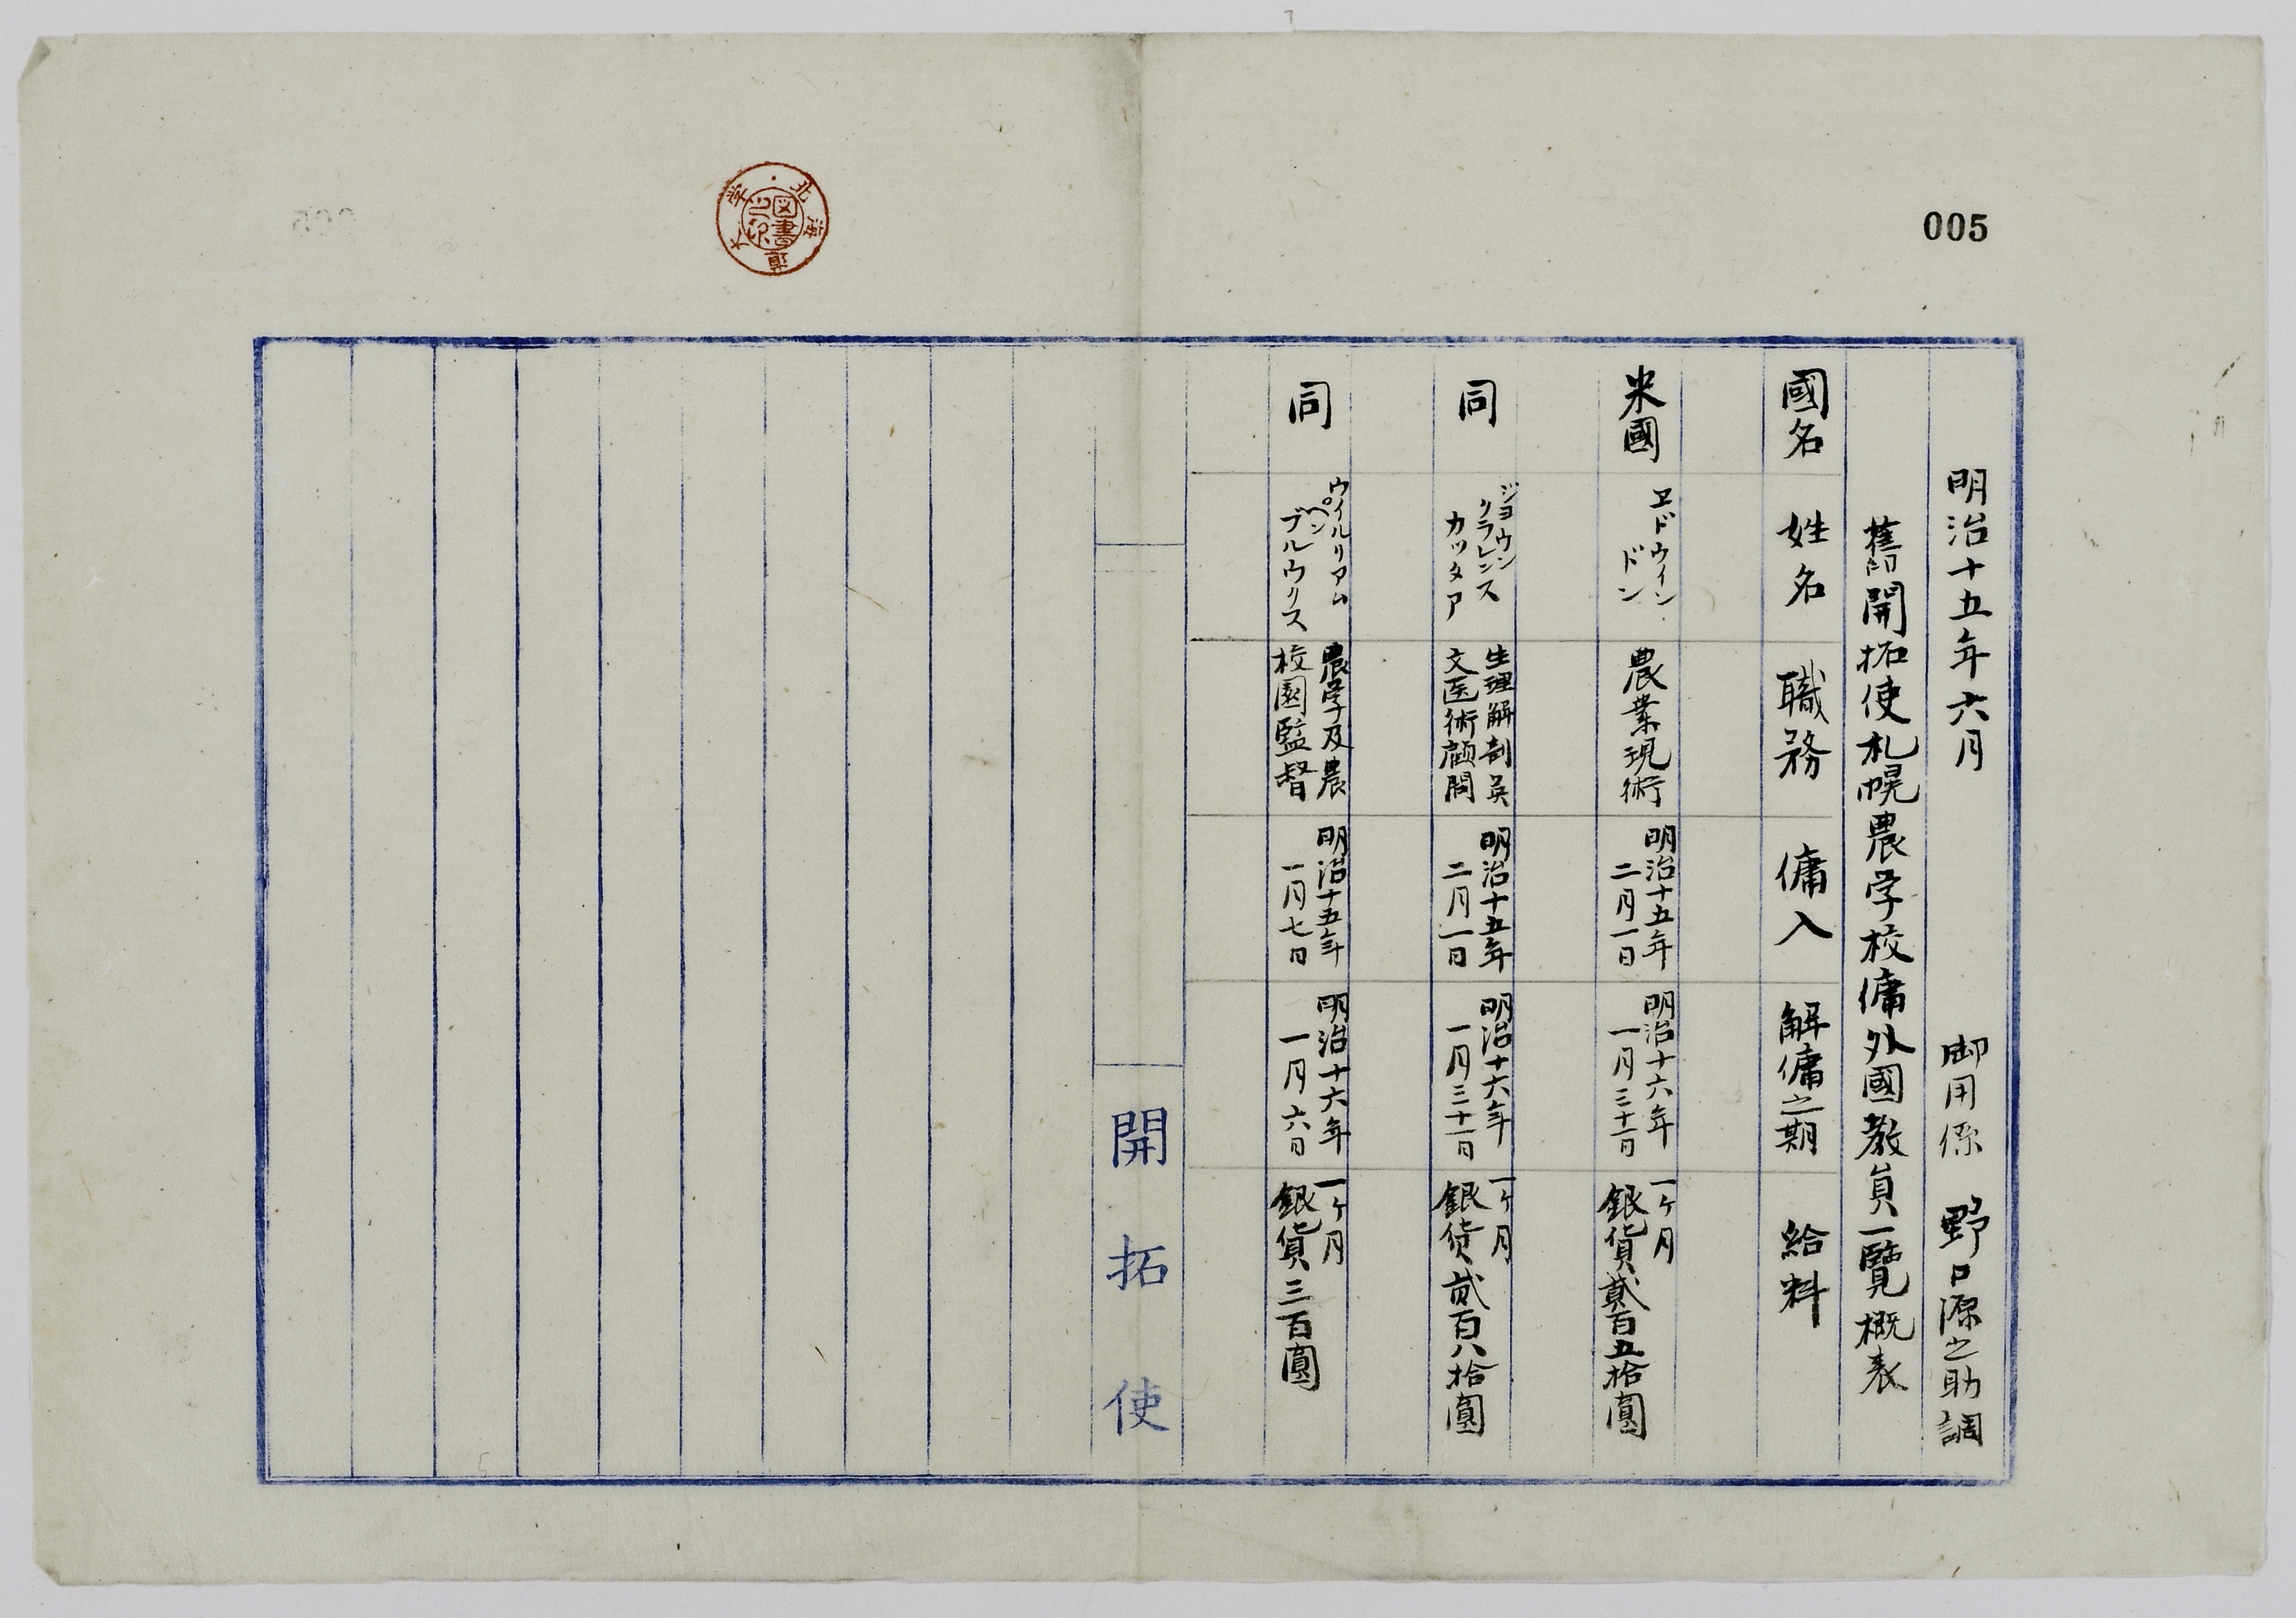 005
明治十五年六月
御用係 野口源之助調
舊開拓使札幌農学校傭外國教員一覽概表
國名 姓名 職務 傭入 解傭之期 給料
米國
ヱドウイン
ドン
農業現術
明治十五年
二月一日
明治十六年
一月三十一日
一ケ月
銀貨貳百五拾圓
同
ジヨウン
クラレンス
カッタア
生理解剖英
文医術顧問
明治十五年
二月一日
明治十六年
一月三十一日
一ケ月
銀貨貳百八拾圓
同
ウイルリアム
ペン
ブルウクス
農学及農
校園監督
明治十五年
一月七日
明治十六年
一月六日
一ケ月
銀貨三百圓
開拓使
北海道大学
図書